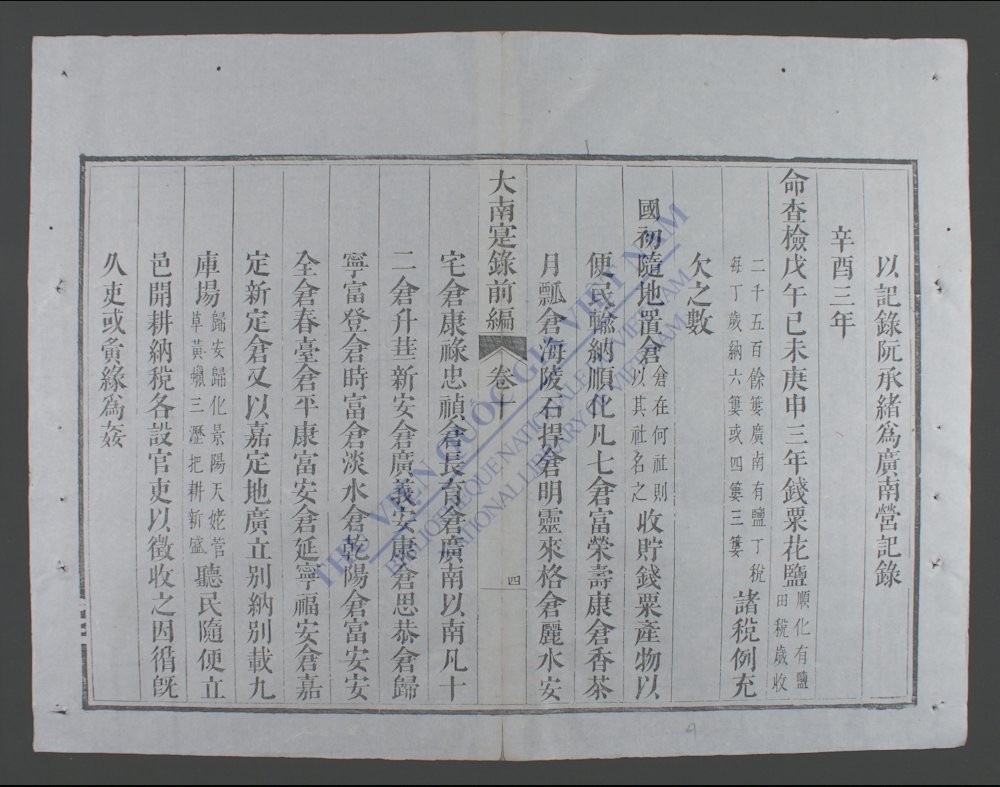 以記錄阮承緒爲廣南營記錄
辛酉三年
命查檢戊午己未庚申三年錢粟花鹽順化有鹽田稅歲收
二千五百餘簍廣南有鹽丁稅每丁歲納六簍或四簍三簍諸稅例充
欠之數
國初隨地置倉倉在何社則以其社名之收貯錢粟產物以
便民輸納順化凡七倉富榮壽康倉香茶
月瓢倉海陵石捍倉明靈來格倉麗水安
大南寔錄前編 卷十 四
宅倉康祿忠禎倉長育倉廣南以南凡十
二倉升華新安倉廣義安康倉思恭倉歸
寧富登倉時富倉淡水倉乾陽倉富安安
全倉春臺倉平康富安倉延寧福安倉嘉
定新定倉又以嘉定地廣立別納別載九
庫場歸安歸化景陽天姥菅草黃蠟三瀝把耕新盛聽民隨便立
邑開耕納稅各設官吏以徵收之因循旣
久吏或夤緣爲姦
THƯ VIỆN QUỐC GIA VIỆT NAM
BIBLIOTHEQUE NATIONALE DU VIETNAM
NATIONAL LIBRARY OF VIETNAM